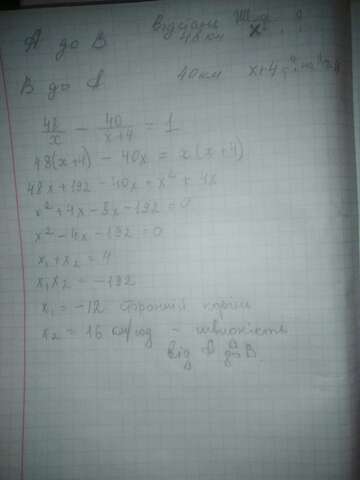 Відстань Шв. ?
А до В 48 км x
В до А 40 км x+4
48/x - 40/x+4 = 1
48(x+4) - 40x = x(x+4)
48x+192 - 40x = x² + 4x
x² + 4x - 8x - 192 = 0
x² - 4x - 192 = 0
x₁ + x₂ = 4
x₁x₂ = -192
x₁ = -12 сторонній корінь
x₂ = 16 км/год - швидкість
від А до В